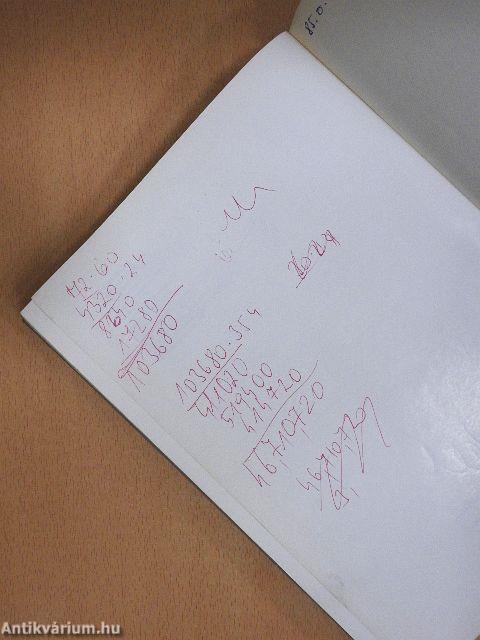 85.0.
72·60
4320·24
8640
17280
103680
103680·354
311020
518400
414720
46,710,720
46,710,720
Antikvárium.hu